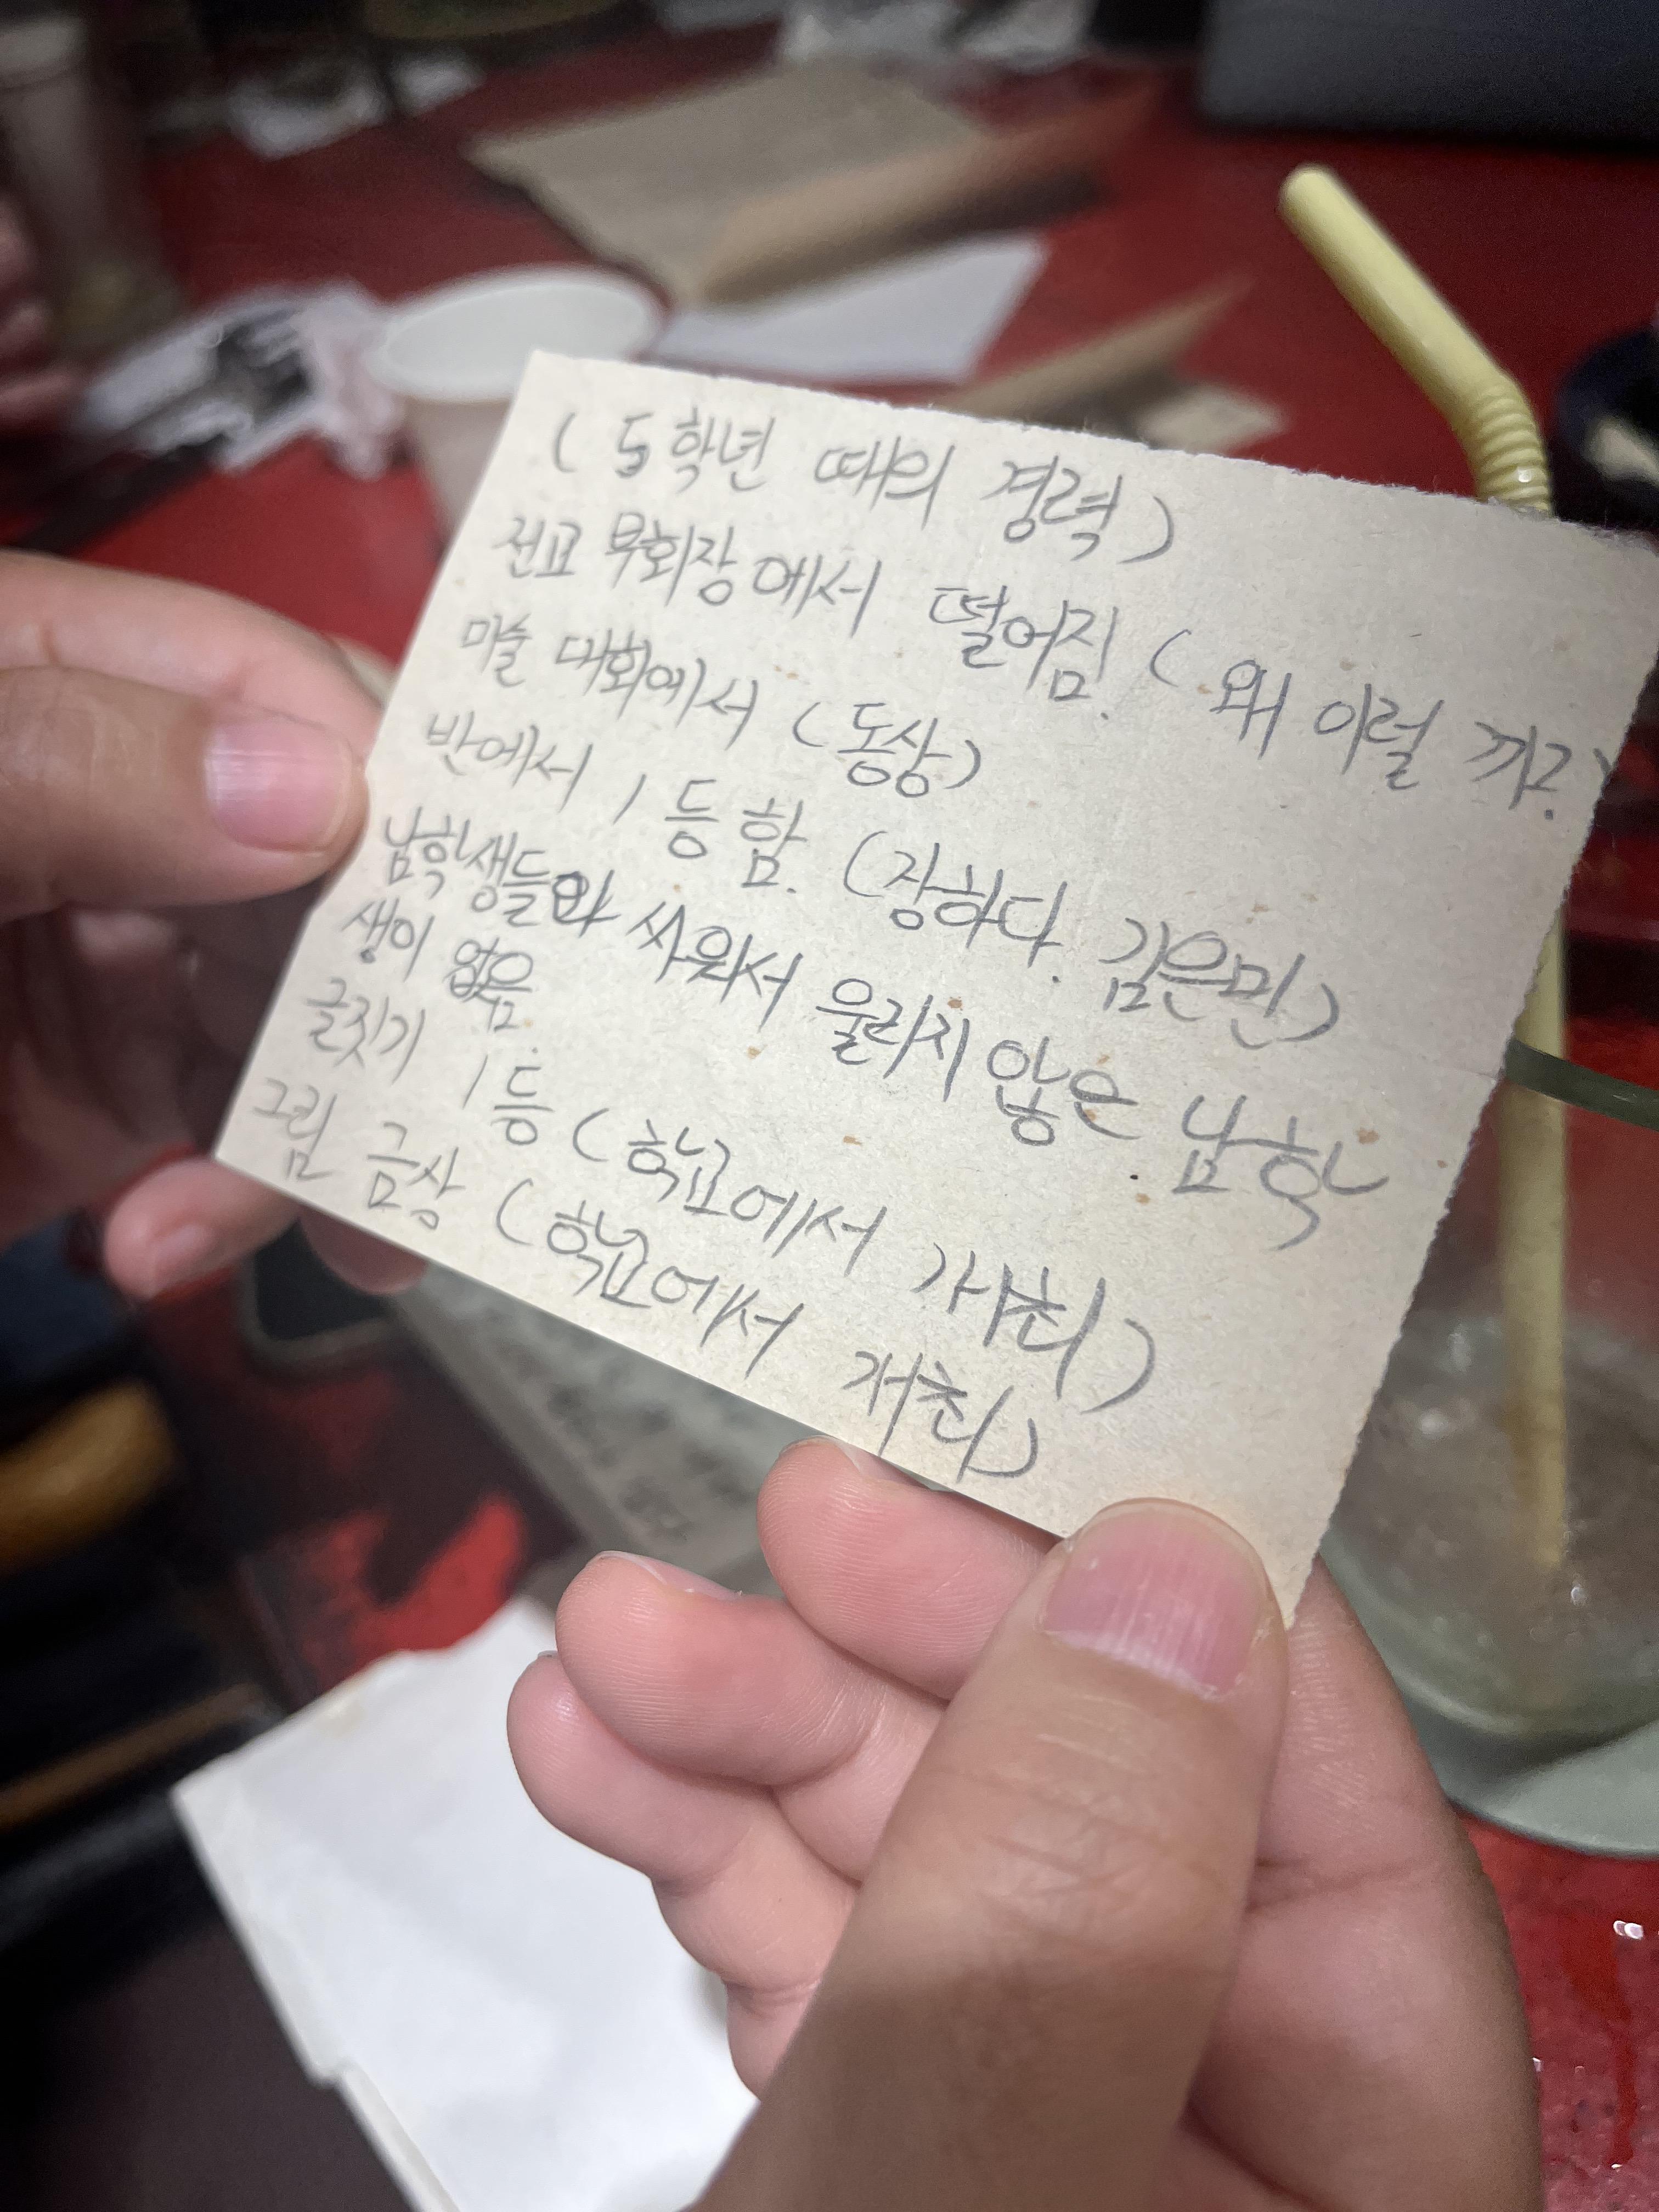 ( 5학년 때의 경력 )
전교 부회장에서 떨어짐. ( 왜 이럴 까?)
미술 대회에서 ( 동상 )
반에서 1등함. (장하다. 김은민)
남학생들와 싸워서 울리지 않은 남학
생이 없음.
글짓기 1등 ( 학교에서 개최 )
그림 금상 ( 학교에서 개최 )